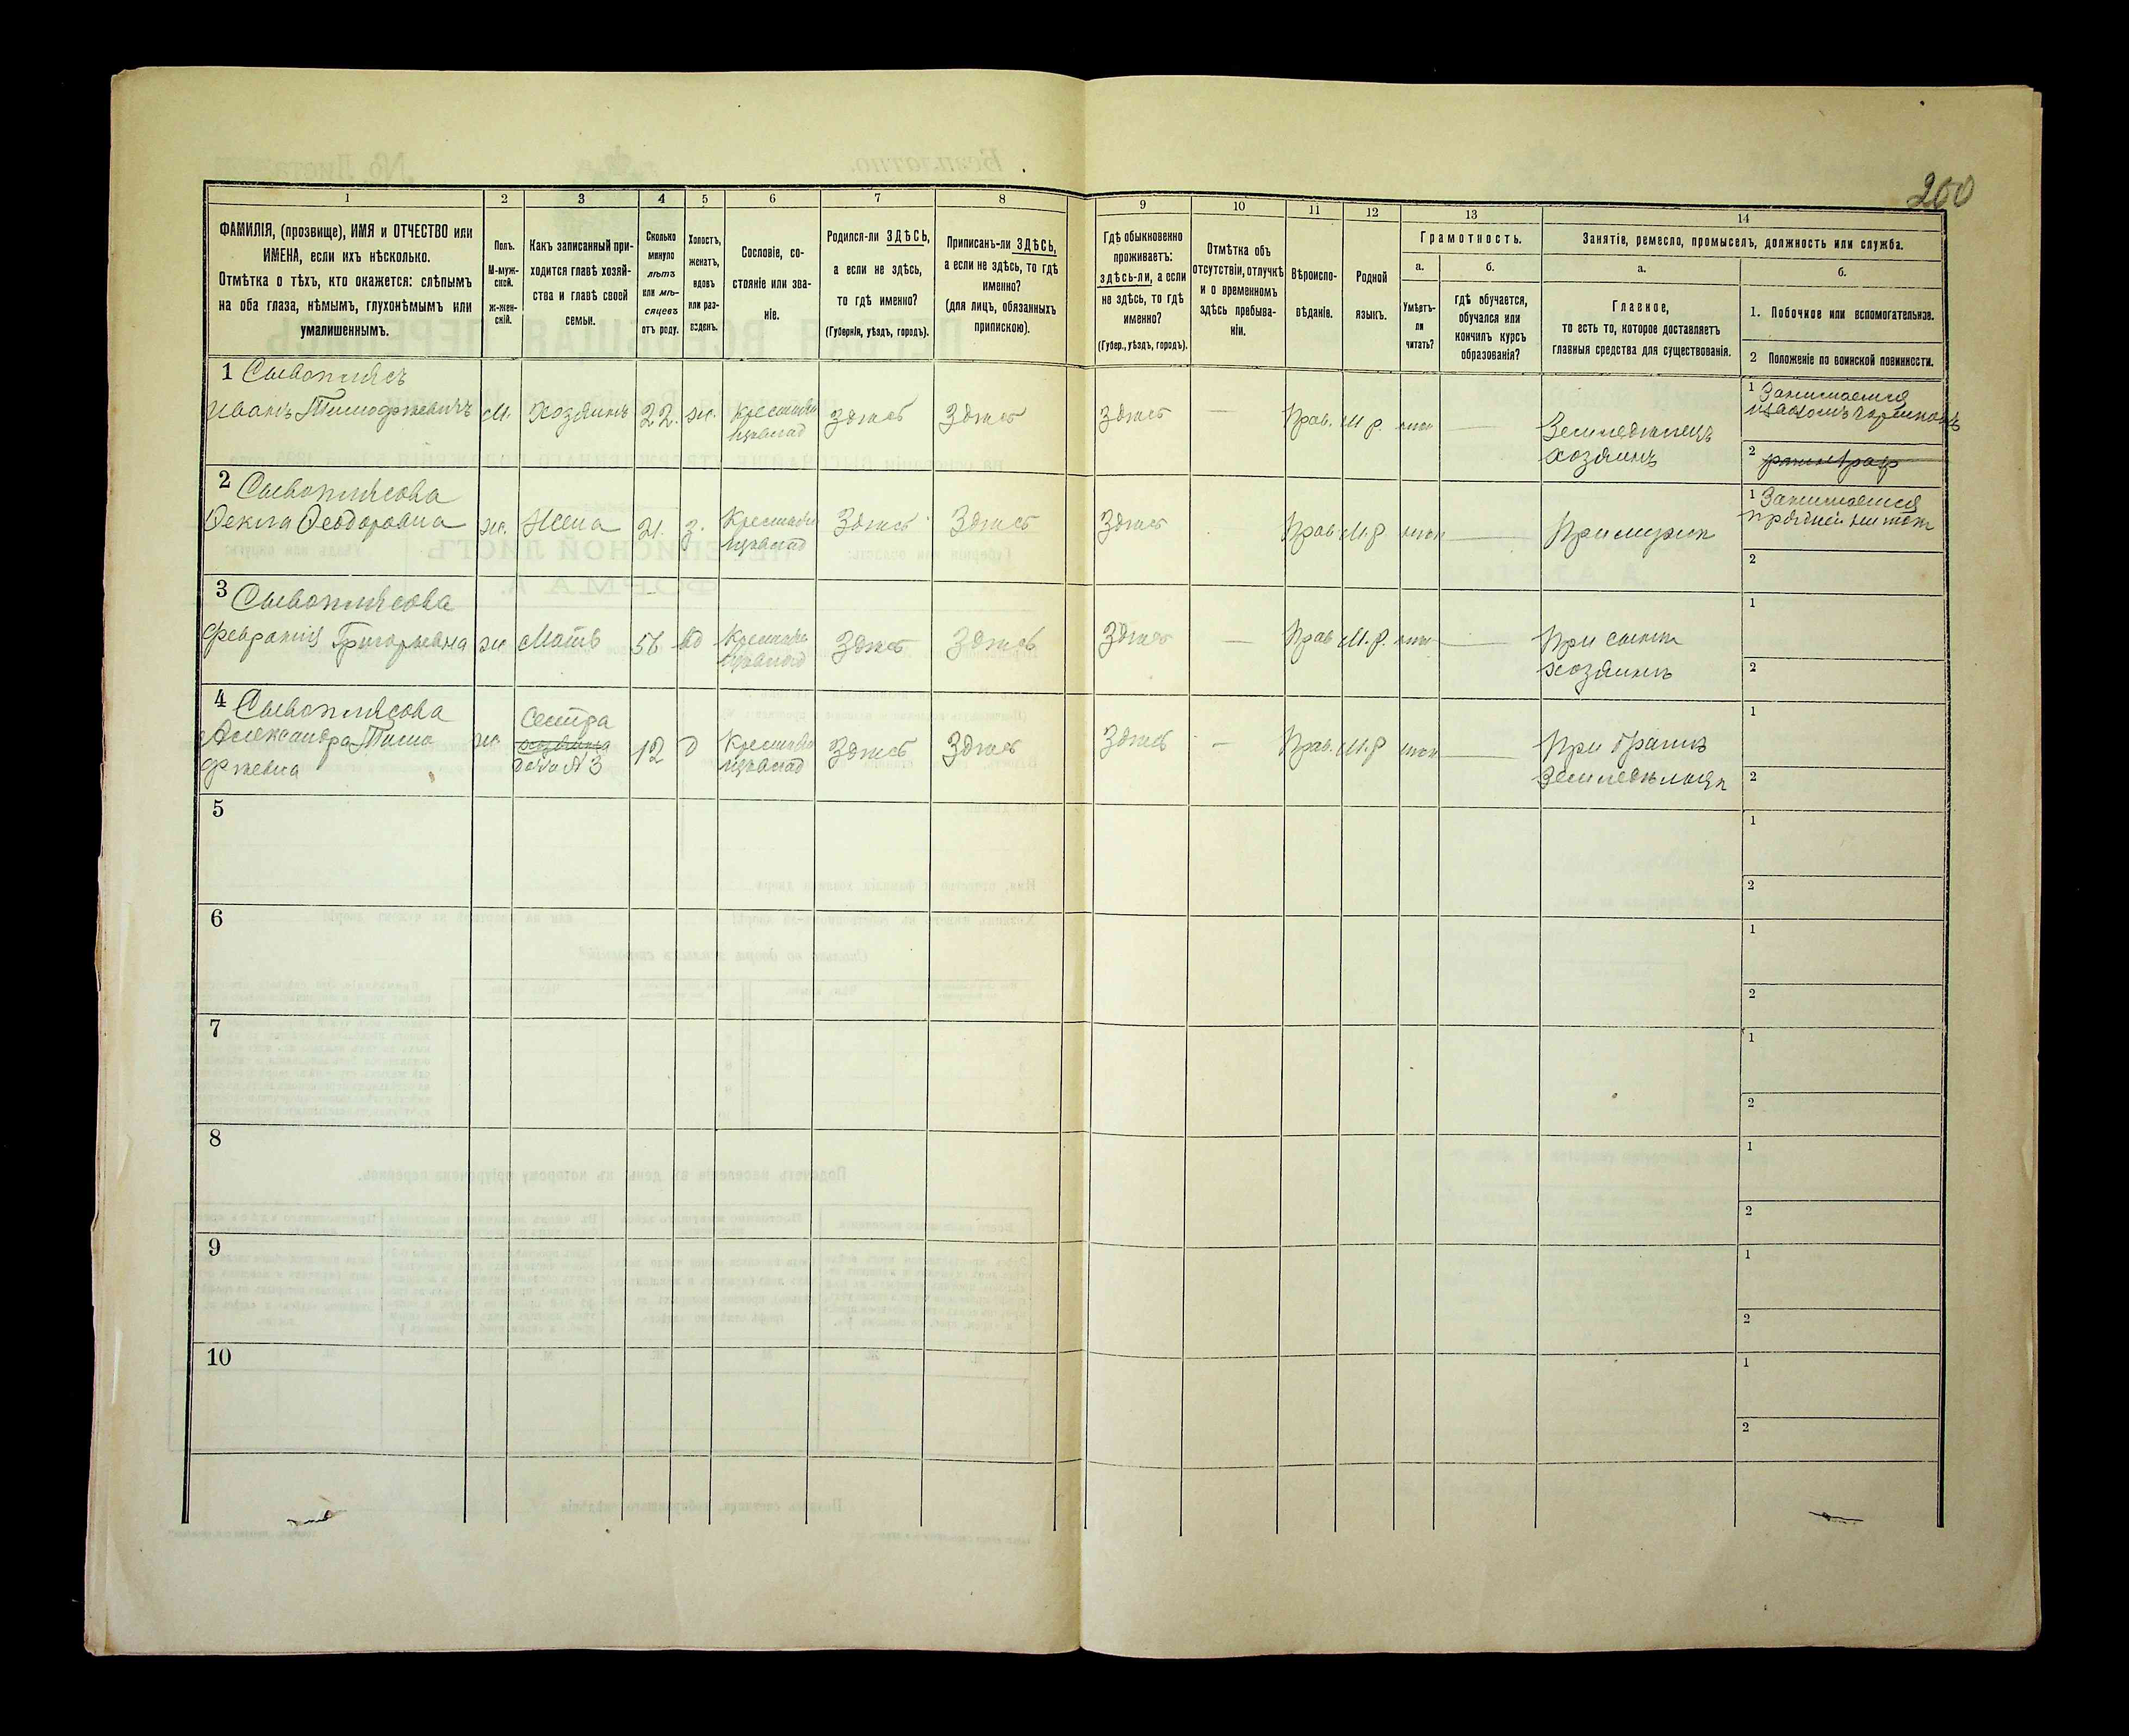 200
1 2 3 4 5 6 7 8 9 10 11 12 13 14
ФАМИЛІЯ, (прозвище), ИМЯ и ОТЧЕСТВО или
ИМЕНА, если ихъ нѣсколько.
Отмѣтка о тѣхъ, кто окажется: слѣпымъ
на оба глаза, нѣмымъ, глухонѣмымъ или
умалишеннымъ.
Полъ.
М-муж-
ской.
Ж-жен-
скій.
Какъ записанный при-
ходится главѣ хозяй-
ства и главѣ своей
семьи.
Сколько
минуло
лѣтъ
или мѣ-
сяцевъ
отъ роду.
Холостъ,
женатъ,
вдовъ
или раз-
веденъ.
Сословіе, со-
стояніе или зва-
ніе.
Родился-ли ЗДѢСЬ,
а если не здѣсь,
то гдѣ именно?
(Губернія, уѣздъ, городъ).
Приписанъ-ли ЗДѢСЬ,
а если не здѣсь, то гдѣ
именно?
(для лицъ, обязанныхъ
припискою).
Гдѣ обыкновенно
проживаетъ:
здѣсь-ли, а если
не здѣсь, то гдѣ
именно?
(Губер., уѣздъ, городъ).
Отмѣтка объ
отсутствіи, отлучкѣ
и о временномъ
здѣсь пребыва-
ніи.
Вѣроиспо-
вѣданіе.
Родной
языкъ.
Грамотность.
а.
Умѣетъ-
ли
читать?
б.
гдѣ обучается,
обучался или
кончилъ курсъ
образованія?
Занятіе, ремесло, промыселъ, должность или служба.
а.
Главное,
то есть то, которое доставляетъ
главныя средства для существованія.
б.
1. Побочное или вспомогательное.
2 Положеніе по воинской повинности.
1 Сывоплясъ
Иванъ Тимофѣевичъ м. хозяинъ 22. ж. Крестьян Здѣсь Здѣсь Здѣсь — Прав. М. р. —
Земледѣлецъ
хозяинъ
1 Занимается
2
2 Сывоплясова
Фекла Феодоровна ж. Жена 21. з. Крестьян Здѣсь Здѣсь Здѣсь Прав М. р. — При мужѣ
1 Занимается
пряжей нитокъ
2
3 Сывоплясова
Григорьевна ж Мать 56 вд Крестьян Здѣсь Здѣсь Здѣсь — Прав М. р. —
При сынѣ
хозяинѣ
1
2
4 Сывоплясова
Александра Тимо
фѣевна ж. Сестра
дочь № 3 12 д Крестьян Здѣсь Здѣсь Здѣсь — Прав. М. р —
При братѣ
Земледѣльцѣ
1
2
5 1
2
6 1
2
7 1
2
8 1
2
9 1
2
10 1
2